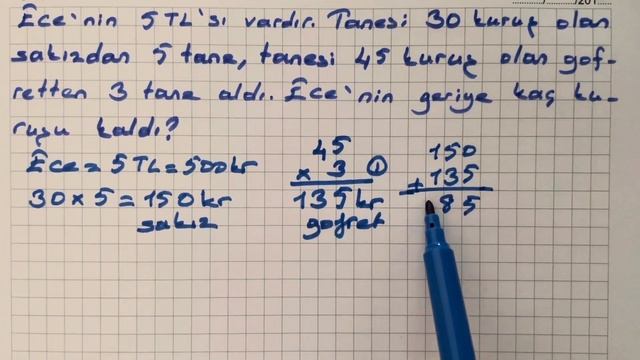 Ece'nin 5 TL'si vardır. Tanesi 30 kuruş olan
sakızdan 5 tane, tanesi 45 kuruş olan gof-
retten 3 tane aldı. Ece'nin geriye kaç ku-
ruşu kaldı?
Ece = 5 TL = 500 kr
30 x 5 = 150 kr
sakız
45
x 3 1
135 kr
gofret
150
+ 135
85